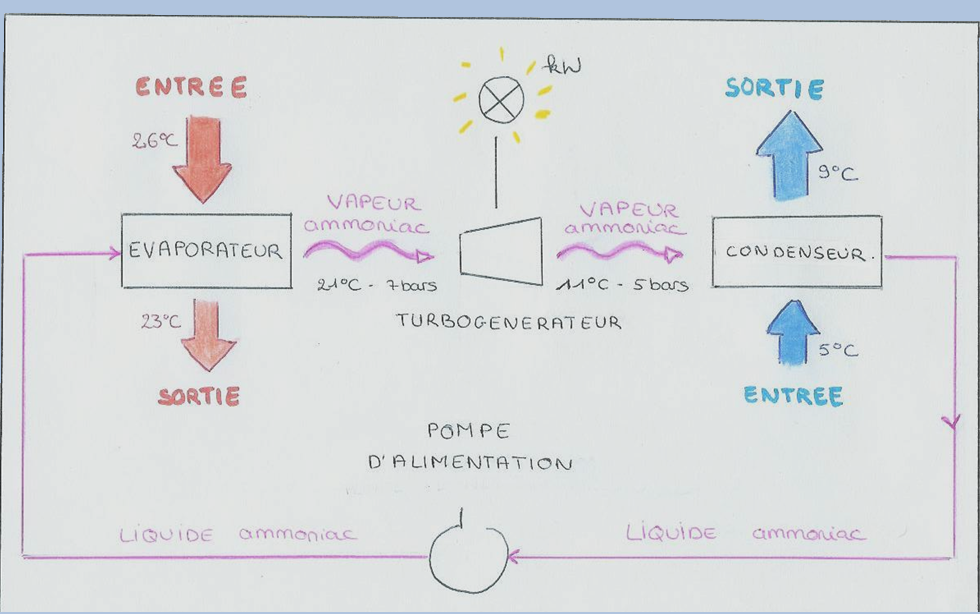 ENTREE
26°C
kW
SORTIE
9°C
VAPEUR
ammoniac
VAPEUR
ammoniac
EVAPORATEUR
CONDENSEUR.
21°C - 7bars
11°C - 5bars
TURBOGENERATEUR
23°C
SORTIE
5°C
ENTREE
POMPE
D'ALIMENTATION
LIQUIDE ammoniac
LIQUIDE ammoniac